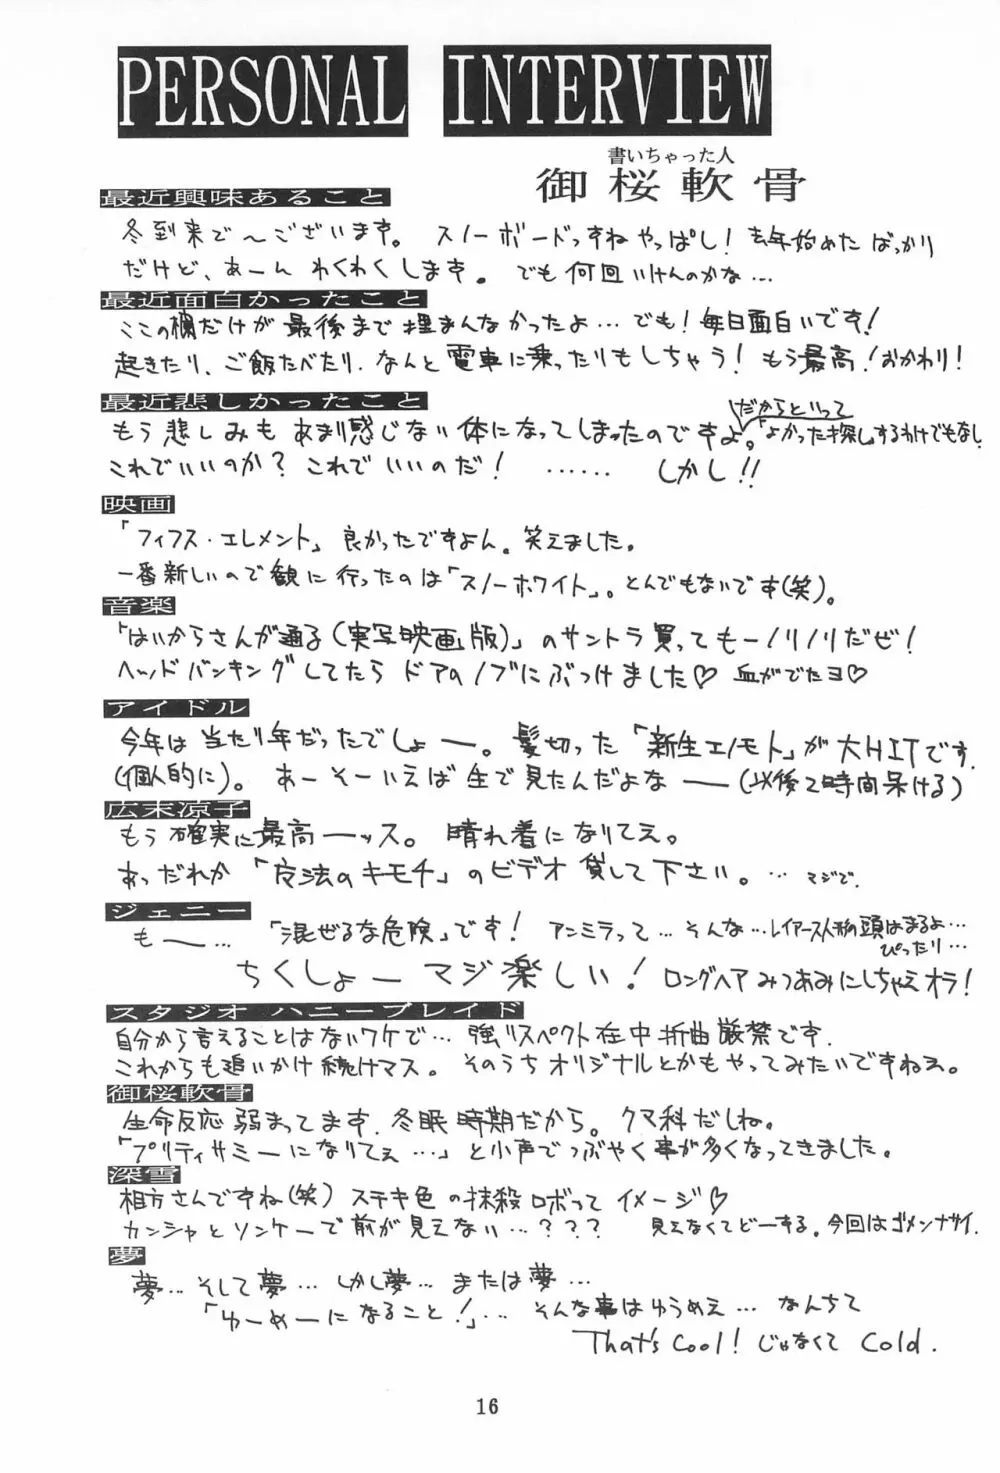 PERSONAL INTERVIEW
書いちゃった人
御桜軟骨
最近興味あること
冬到来で〜ございます。 スノーボードっすねやっぱし!去年始めたばっかり
だけど、あーんわくわくします。でも何回いけんのかな…
最近面白かったこと
ここの欄だけが最後まで埋まんなかったよ…でも!毎日面白いです!
起きたり、ご飯たべたり.なんと電車に乗ったりもしちゃう!もう最高!おかわり!
最近悲しかったこと
もう悲しみもあまり感じない体になってしまったのですよ。だからといって「よかった探しするわけでもなし
これでいいのか?これでいいのだ! …… しかし!!
映画
「フィフス・エレメント」良かったですよん。笑えました。
一番新しいので観に行ったのは「スノーホワイト」。とんでもないです(笑)。
音楽
「はいからさんが通る(実写映画版)」のサントラ買ってもーノリノリだぜ!
ヘッドバンキングしてたらドアのノブにぶつけました♡ 血がでたヨ♡
アイドル
今年は当たり年だったでしょー。髪切った「新生エノモト」が大HITです.
(個人的に)。あーそーいえば生で見たんだよなー(以後2時間呆ける)
広末涼子
もう確実に最高ーッス。晴れ着になりてえ。
あっだれか「魔法のキモチ」のビデオ貸して下さい。…マジで.
ジェニー
もー…「混ぜるな危険」です!アンミラって…そんな…レイアース人形の頭はまるよ…
ぴったり…
ちくしょーマジ楽しい!ロングヘアみつあみにしちゃえオラ!
スタジオ ハニーブレイド
自分から言えることはないワケで…強リスペクト在中折曲厳禁です.
これからも追いかけ続けマス。そのうちオリジナルとかもやってみたいですねえ。
御桜軟骨
生命反応弱まってます.冬眠時期だから。クマ科だしね。
「プリティサミーになりてえ…」と小声でつぶやく事が多くなってきました。
深雪
相方さんですね(笑)ステキ色の抹殺ロボってイメージ♡
カンシャとソンケーで前が見えない…??? 見えなくてどーする。今回はゴメンナサイ.
夢
夢…そして夢…しかし夢…または夢…
「ゆーめーになること!」…そんな事はゆうめえ…なんちて
That's Cool!じゃなくてCold.
16